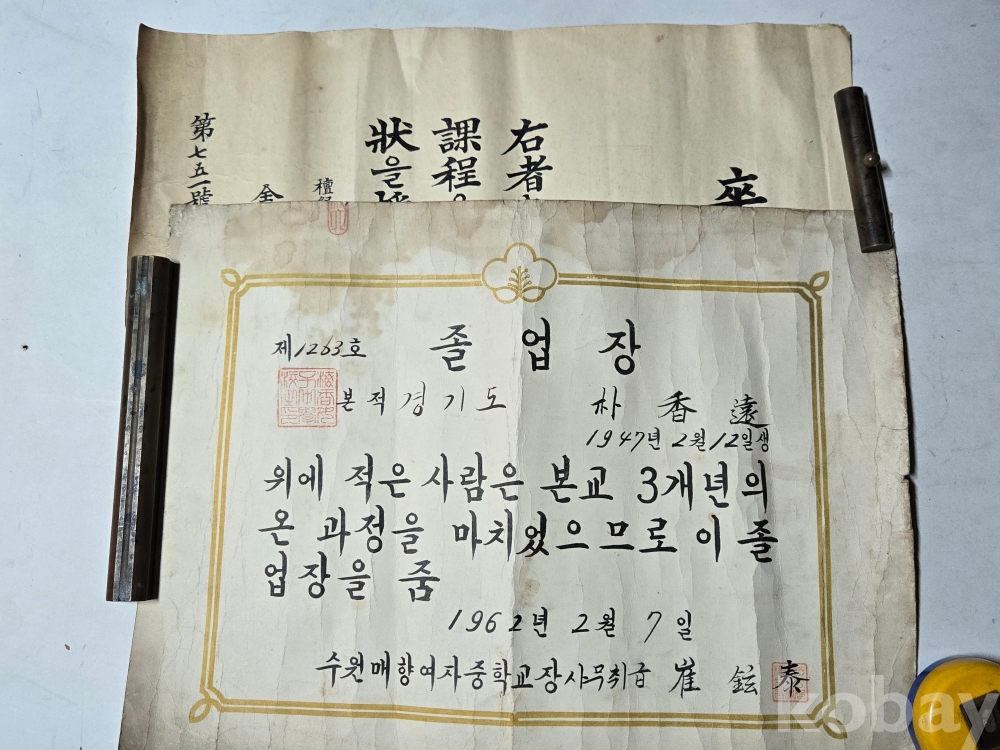 第七五一號
檀紀
金
狀을
課程을
右者
卒
제1263호
졸업장
본적 경기도
朴香遠
1947년 2월 12일생
위에 적은 사람은 본교 3개년의
온 과정을 마치었으므로 이 졸
업장을 줌
1962년 2월 7일
수원매향여자중학교장사무취급 崔鉉泰
kobay